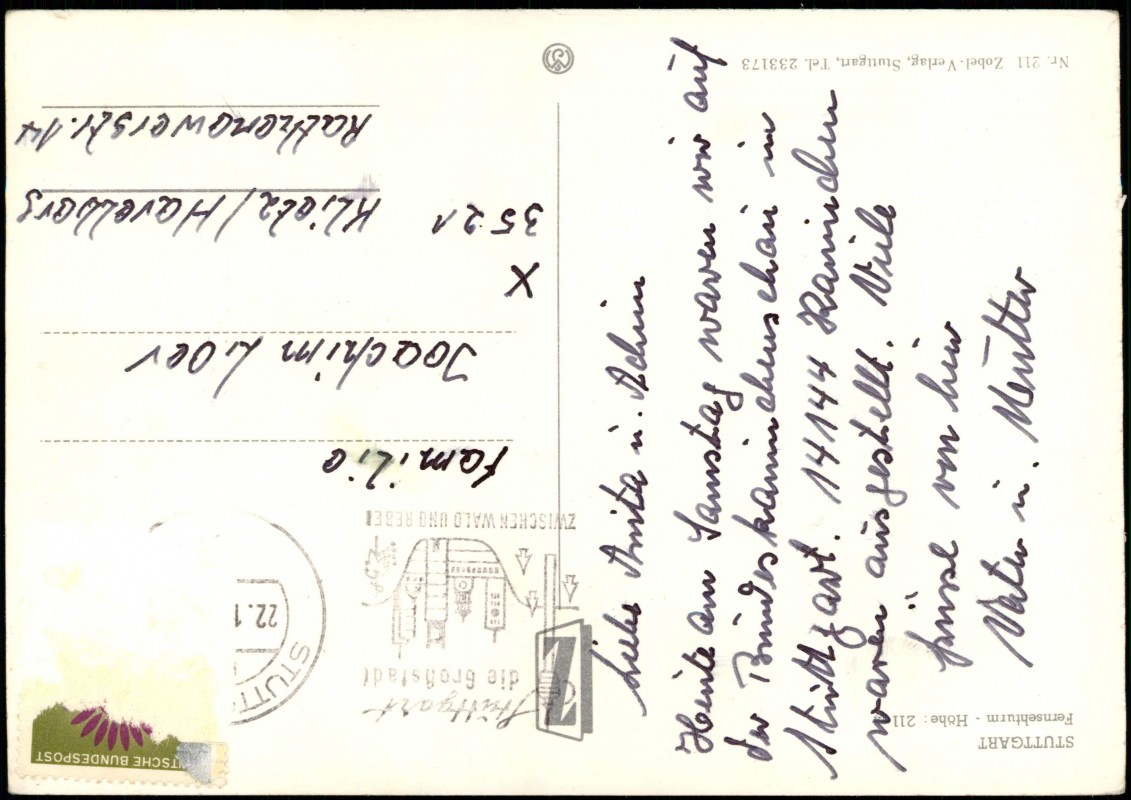 STUTTGART
Fernsehturm - Höhe: 211
Nr. 211 Zobel-Verlag, Stuttgart, Tel. 233173
Liebe Anita u. Achim
Heute am Samstag waren wir auf
der Bundeskaninchenschau in
Stuttgart. 14144 Kaninchen
waren ausgestellt. Viele
Grüsse von hier
Vater u. Mutter
TSCHE BUNDESPOST
STUTT
22.1
Stuttgart
die Großstadt
ZWISCHEN WALD UND REBEN
Z
Familie
Joachim
X
3521 Klietz/Havelberg
Rathenowerstr. 14